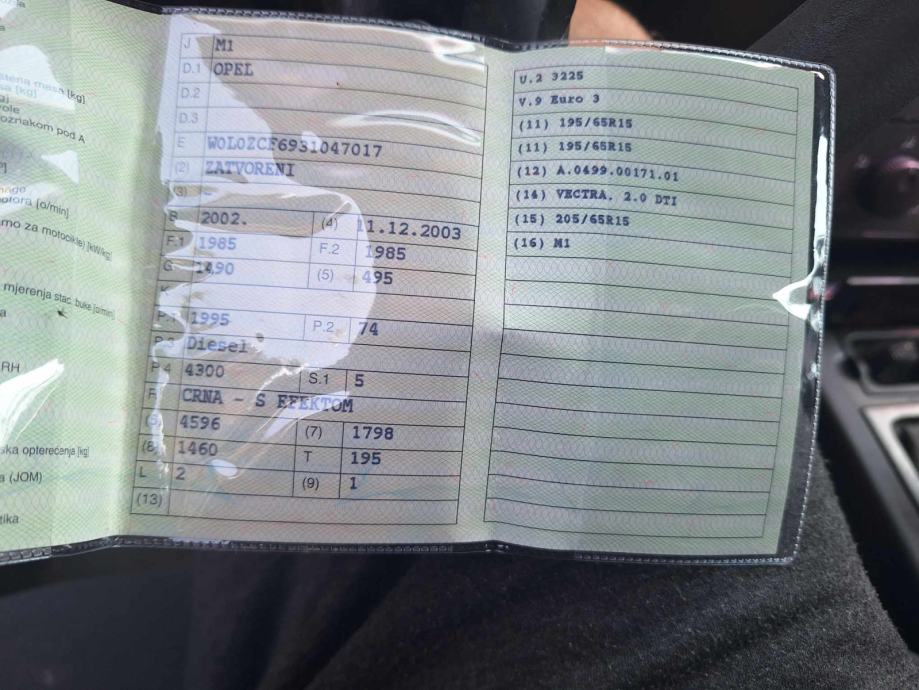 štena masa [kg]
sa [kg]
gj
vole
oznakom pod A
nage
otora [o/min]
mo za motocikle) [kW/kg]
mjerenja stac. buke [o/min]
a
RH
ska opterećenja [kg]
a (JOM)
tika
J M1
D.1 OPEL
D.2
D.3
E
(2) ZATVORENI
(3) -
B 2002. (4) 11.12.2003
F.1 1985 F.2 1985
G 1490 (5) 495
K
P.1 1995 P.2 74
P.3 Diesel
P.4 4300 S.1 5
R CRNA - S EFEKTOM
(6) 4596 (7) 1798
(8) 1460 T 195
L 2 (9) 1
(13)
U.2 3225
V.9 Euro 3
(11) 195/65R15
(11) 195/65R15
(12) A.0499.00171.01
(14) VECTRA. 2.0 DTI
(15) 205/65R15
(16) M1